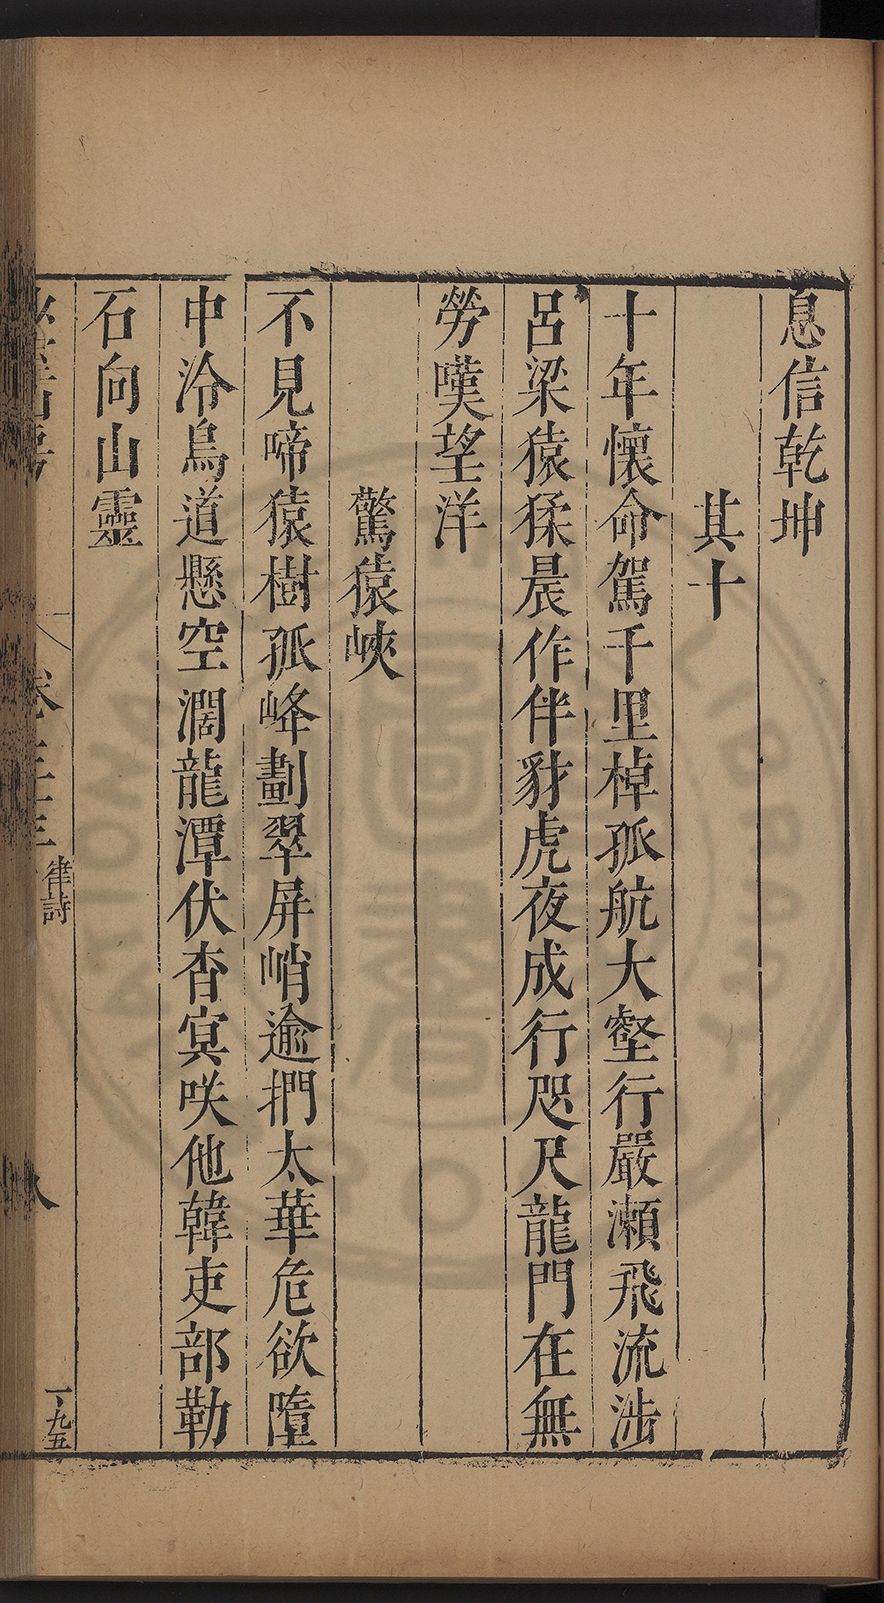 息信乾坤
其十
十年懷命駕千里棹孤航大壑行嚴瀨飛流涉
呂梁猿猱晨作伴豺虎夜成行咫尺龍門在無
勞嘆望洋
驚猿峽
不見啼猿樹孤峰劃翠屏峭逾捫太華危欲墮
中泠鳥道懸空濶龍潭伏杳冥咲他韓吏部勒
石向山靈
卷二十三
律詩
八
一九五